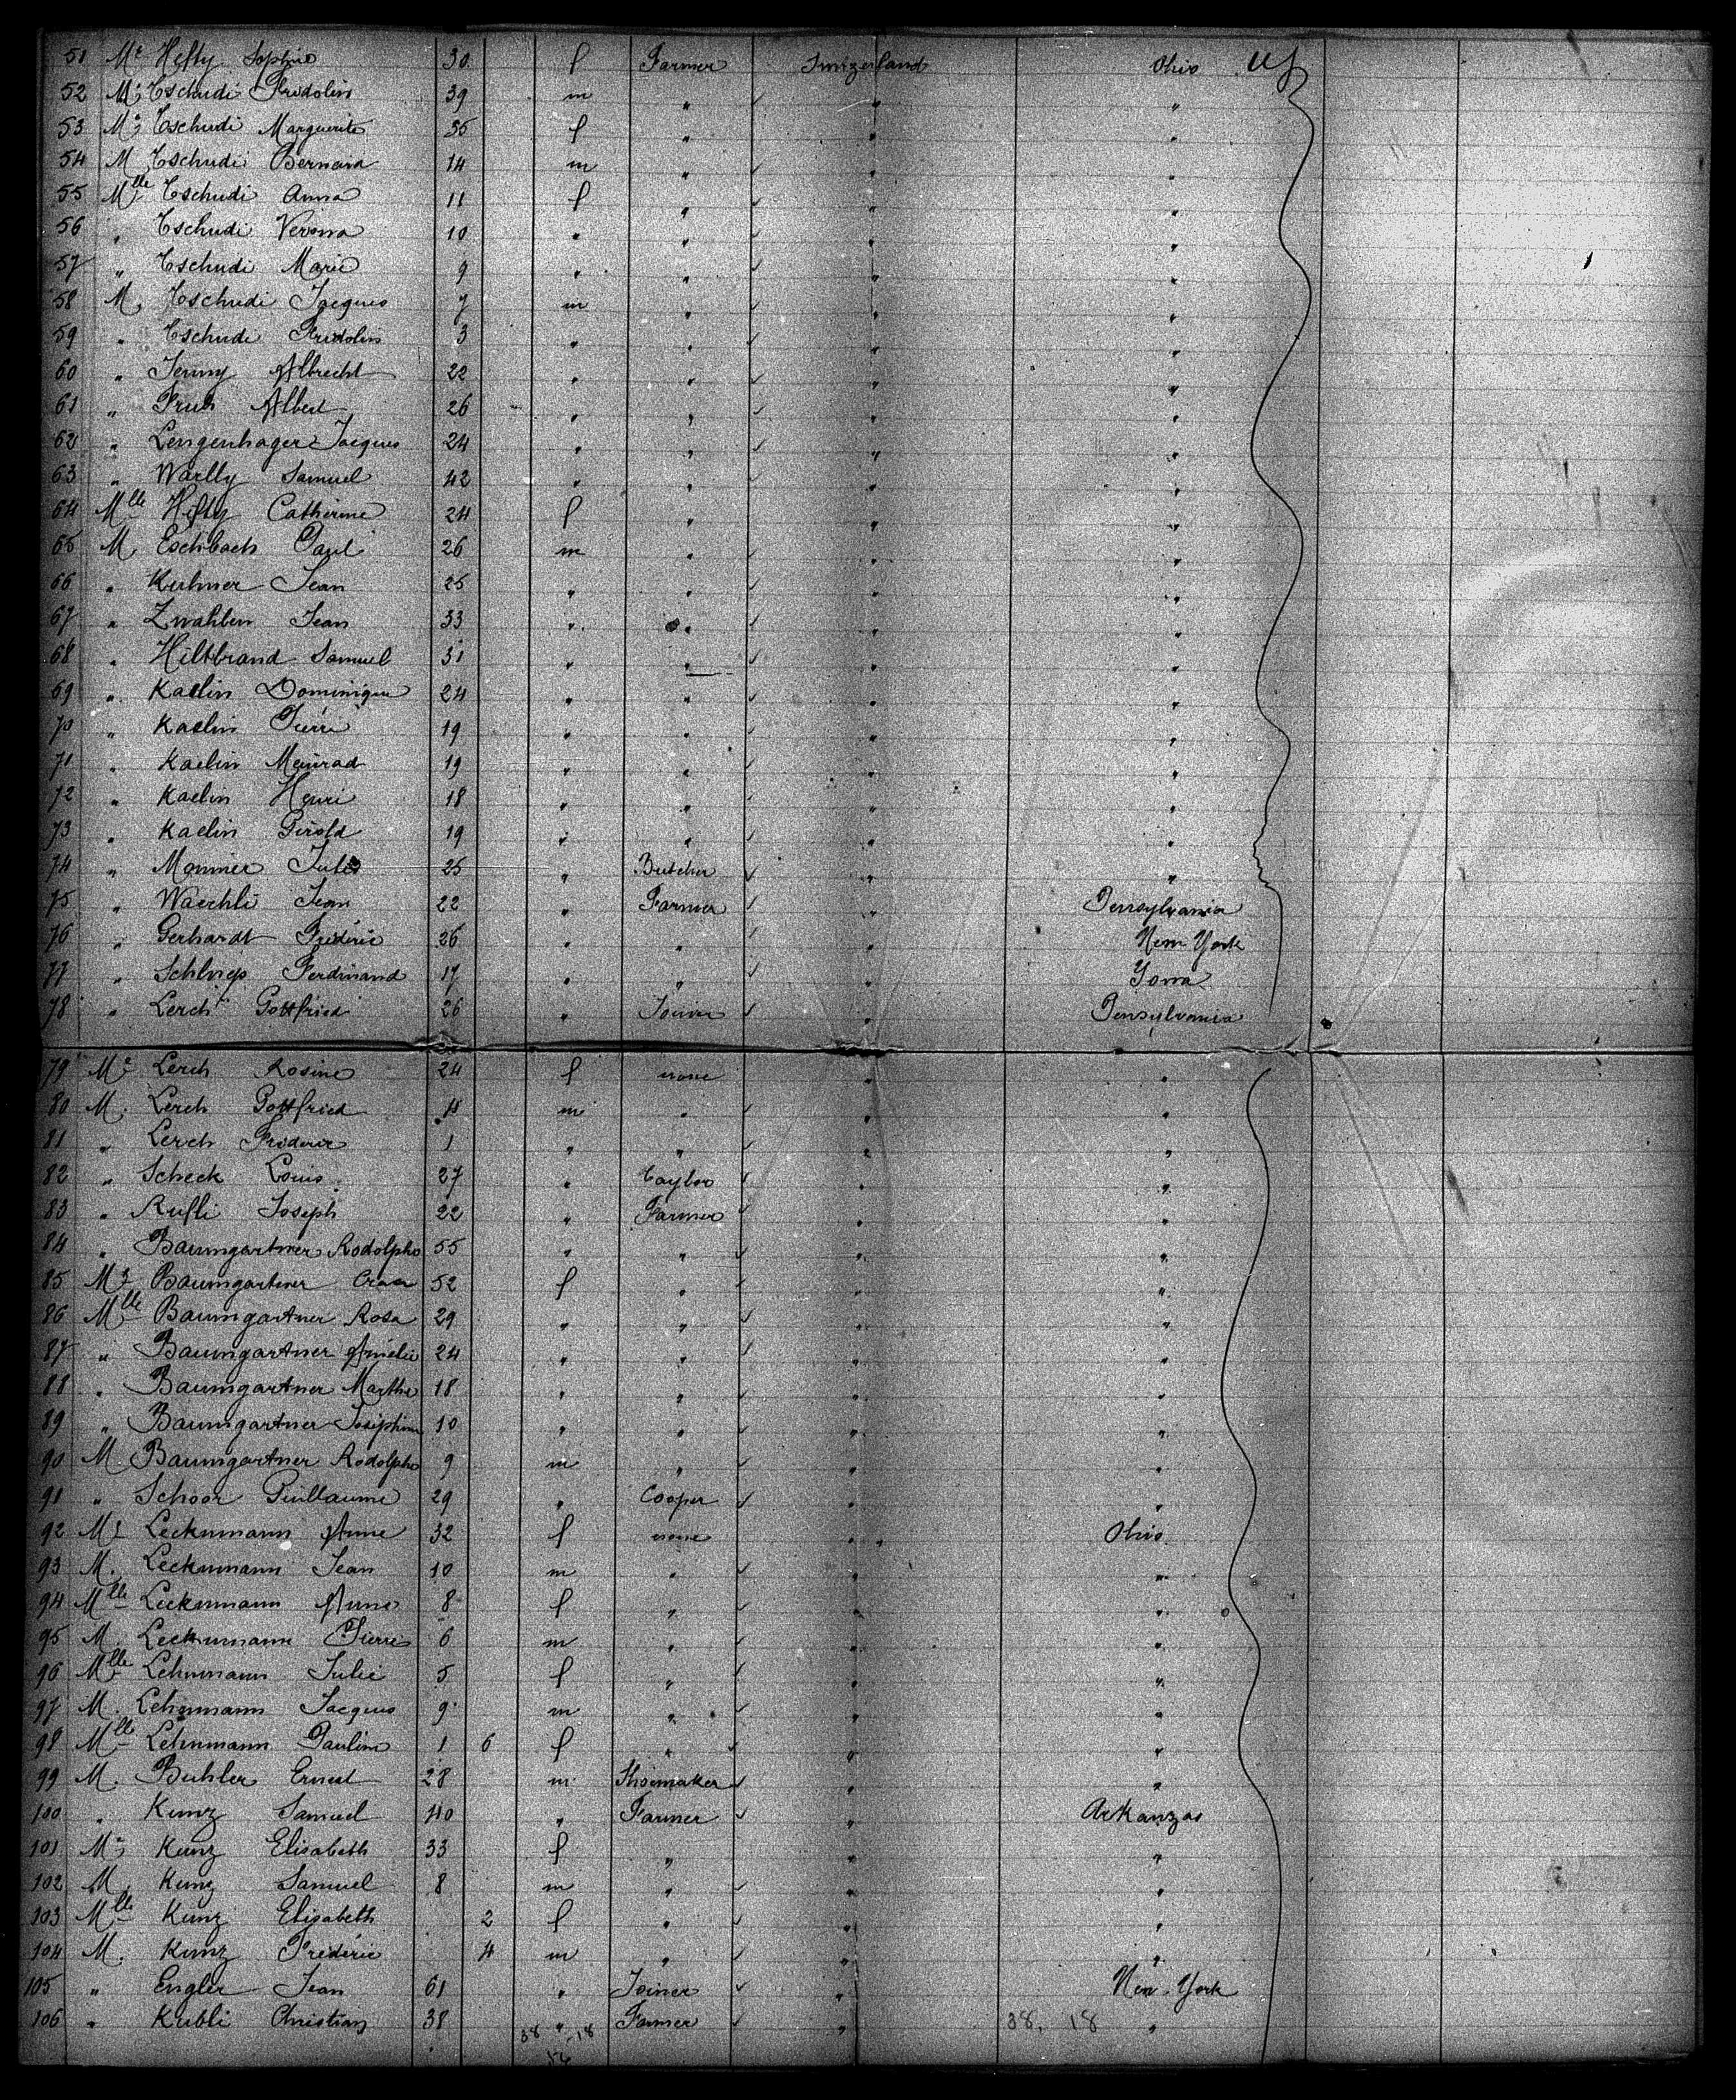 51 Me Hefty Sophie 30 f Farmer Switzerland Ohio
52 M. Tschudi Fridolin 39 m " " "
53 Me Tschudi Marguerite 35 f " " "
54 M Tschudi Bernard 14 m " " "
55 Mlle Tschudi Anna 11 f " " "
56 " Tschudi Verona 10 " " " "
57 " Tschudi Marie 9 " " " "
58 M. Tschudi Jacques 7 m " " "
59 " Tschudi Fridolin 3 " " " "
60 " Jenny Albrecht 22 " " " "
61 " Fruh Albert 26 " " " "
62 " Lengenhager Jacques 24 " " " "
63 " Samuel 42 " " " "
64 Mlle Hefty Catherine 24 f " " "
65 M. Eschbach Paul 26 m " " "
66 " Kuhner Jean 25 " " " "
67 " Zwahlen Jean 33 " " " "
68 " Hiltbrand Samuel 31 " " " "
69 " Kaelin Dominique 24 " " " "
70 " Kaelin Pierre 19 " " " "
71 " Kaelin Meinrad 19 " " " "
72 " Kaelin Henri 18 " " " "
73 " Kaelin Gerold 19 " " " "
74 " Monnier Jules 25 " Butcher " "
75 " Waechli Jean 22 " Farmer " Pensylvania
76 " Gerhardt Fréderic 26 " " " New York
77 " Ferdinand 17 " " " Yowa
78 " Lerch Gottfried 26 " Joiner " Pensylvania
79 Me Lerch Rosine 24 f none " "
80 M. Lerch Gottfried m " " "
81 " Lerch Frederic 1 " " " "
82 " Scheck Louis 27 " Taylor " "
83 " Rufli Joseph 22 " Farmer " "
84 " Baumgartner Rodolphe 55 " " " "
85 Me Baumgartner 52 f " " "
86 Mlle Baumgartner Rosa 29 " " " "
87 " Baumgartner Amélie 24 " " " "
88 " Baumgartner Marthe 18 " " " "
89 " Baumgartner Josephine 10 " " " "
90 M. Baumgartner Rodolphe 9 m " " "
91 " Schoor Guillaume 29 " Cooper " "
92 Me Lecknmann Anne 32 f none " Ohio
93 M. Lecknmann Jean 10 m " " "
94 Mlle Lecknmann Anne 8 f " " "
95 M. Lecknmann Pierre 6 m " " "
96 Mlle Lehnmann Julie 5 f " " "
97 M. Lehnmann Jacques 9 m " " "
98 Mlle Lehnmann Pauline 1 6 f " " "
99 M. Buhler Ernest 28 m Shoemaker " "
100 " Kunz Samuel 40 " Farmer " Arkanzas
101 Me Kunz Elisabeth 33 f " " "
102 M. Kunz Samuel 8 m " " "
103 Mlle Kunz Elisabeth 2 f " " "
104 M. Kunz Fréderic 4 m " " "
105 " Engler Jean 61 " Joiner " New-York
106 " Kubli Christian 38 " Farmer " "
38 18 38. 18
56